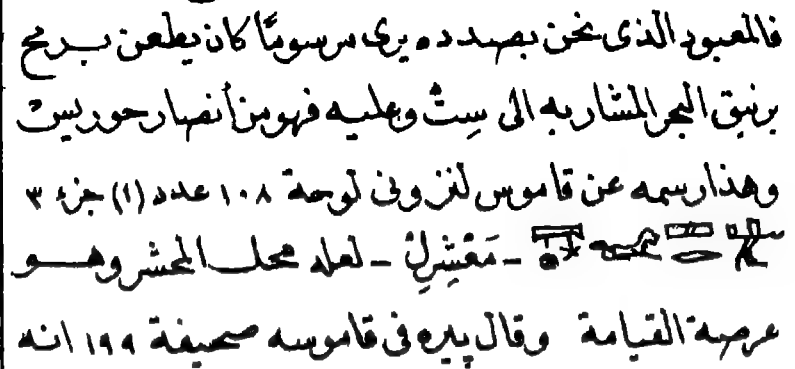 فالمعبود الذى نحن بصدده يرى مرسومًا كان يطعن برمح
برنيق البحر المشار به الى سِتْ وعليه فهو من أنصار حوريس
وهذا رسمه عن قاموس لنزونى لوحة ١٠٨ عدد (١) جزء ٣
ـ مَعْشِرِلْ ـ لعله محل المحشر وهو
عرصة القيامة وقال پيره فى قاموسه صحيفة ١٩٩ انه